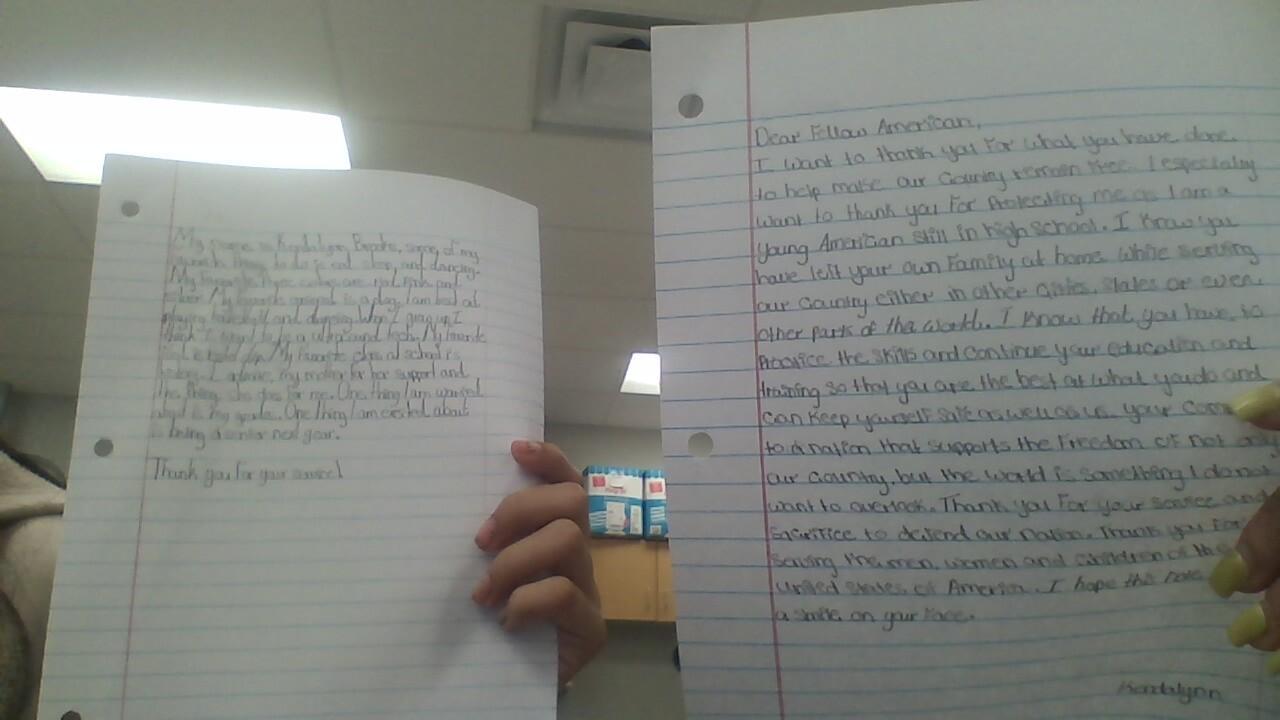 My name is Kendalynn Brooks, some of my
favorite things to do is eat, sleep, and dancing.
My favorite colors are pink and
silver. My favorite animal is a dog. I am best at
playing and dancing. When I grow up I
think I want to be a tech. My favorite
My favorite class at school is
I admire my mother for her support and
the things she does for me. One thing I am worried
about is my grades. One thing I am excited about
is being a senior next year.
Thank you for your service!
Dear Fellow American,
I want to thank you for what you have done
to help make our Country remain free. I especially
want to thank you for Protecting me as I am a
young American still in high school. I know you
have left your own Family at home while serving
our Country either in other States or even
other parts of the world. I know that you have to
Practice the skills and continue your education and
training so that you are the best at what you do and
can keep yourself safe as well as us. Your
to a nation that supports the Freedom of not only
our country, but the world is something I do not
want to overlook. Thank you For your service and
sacrifice to defend our nation. Thank you for
the men, women and children of the
United States of America. I hope this note
a smile on your face.
Kendalynn